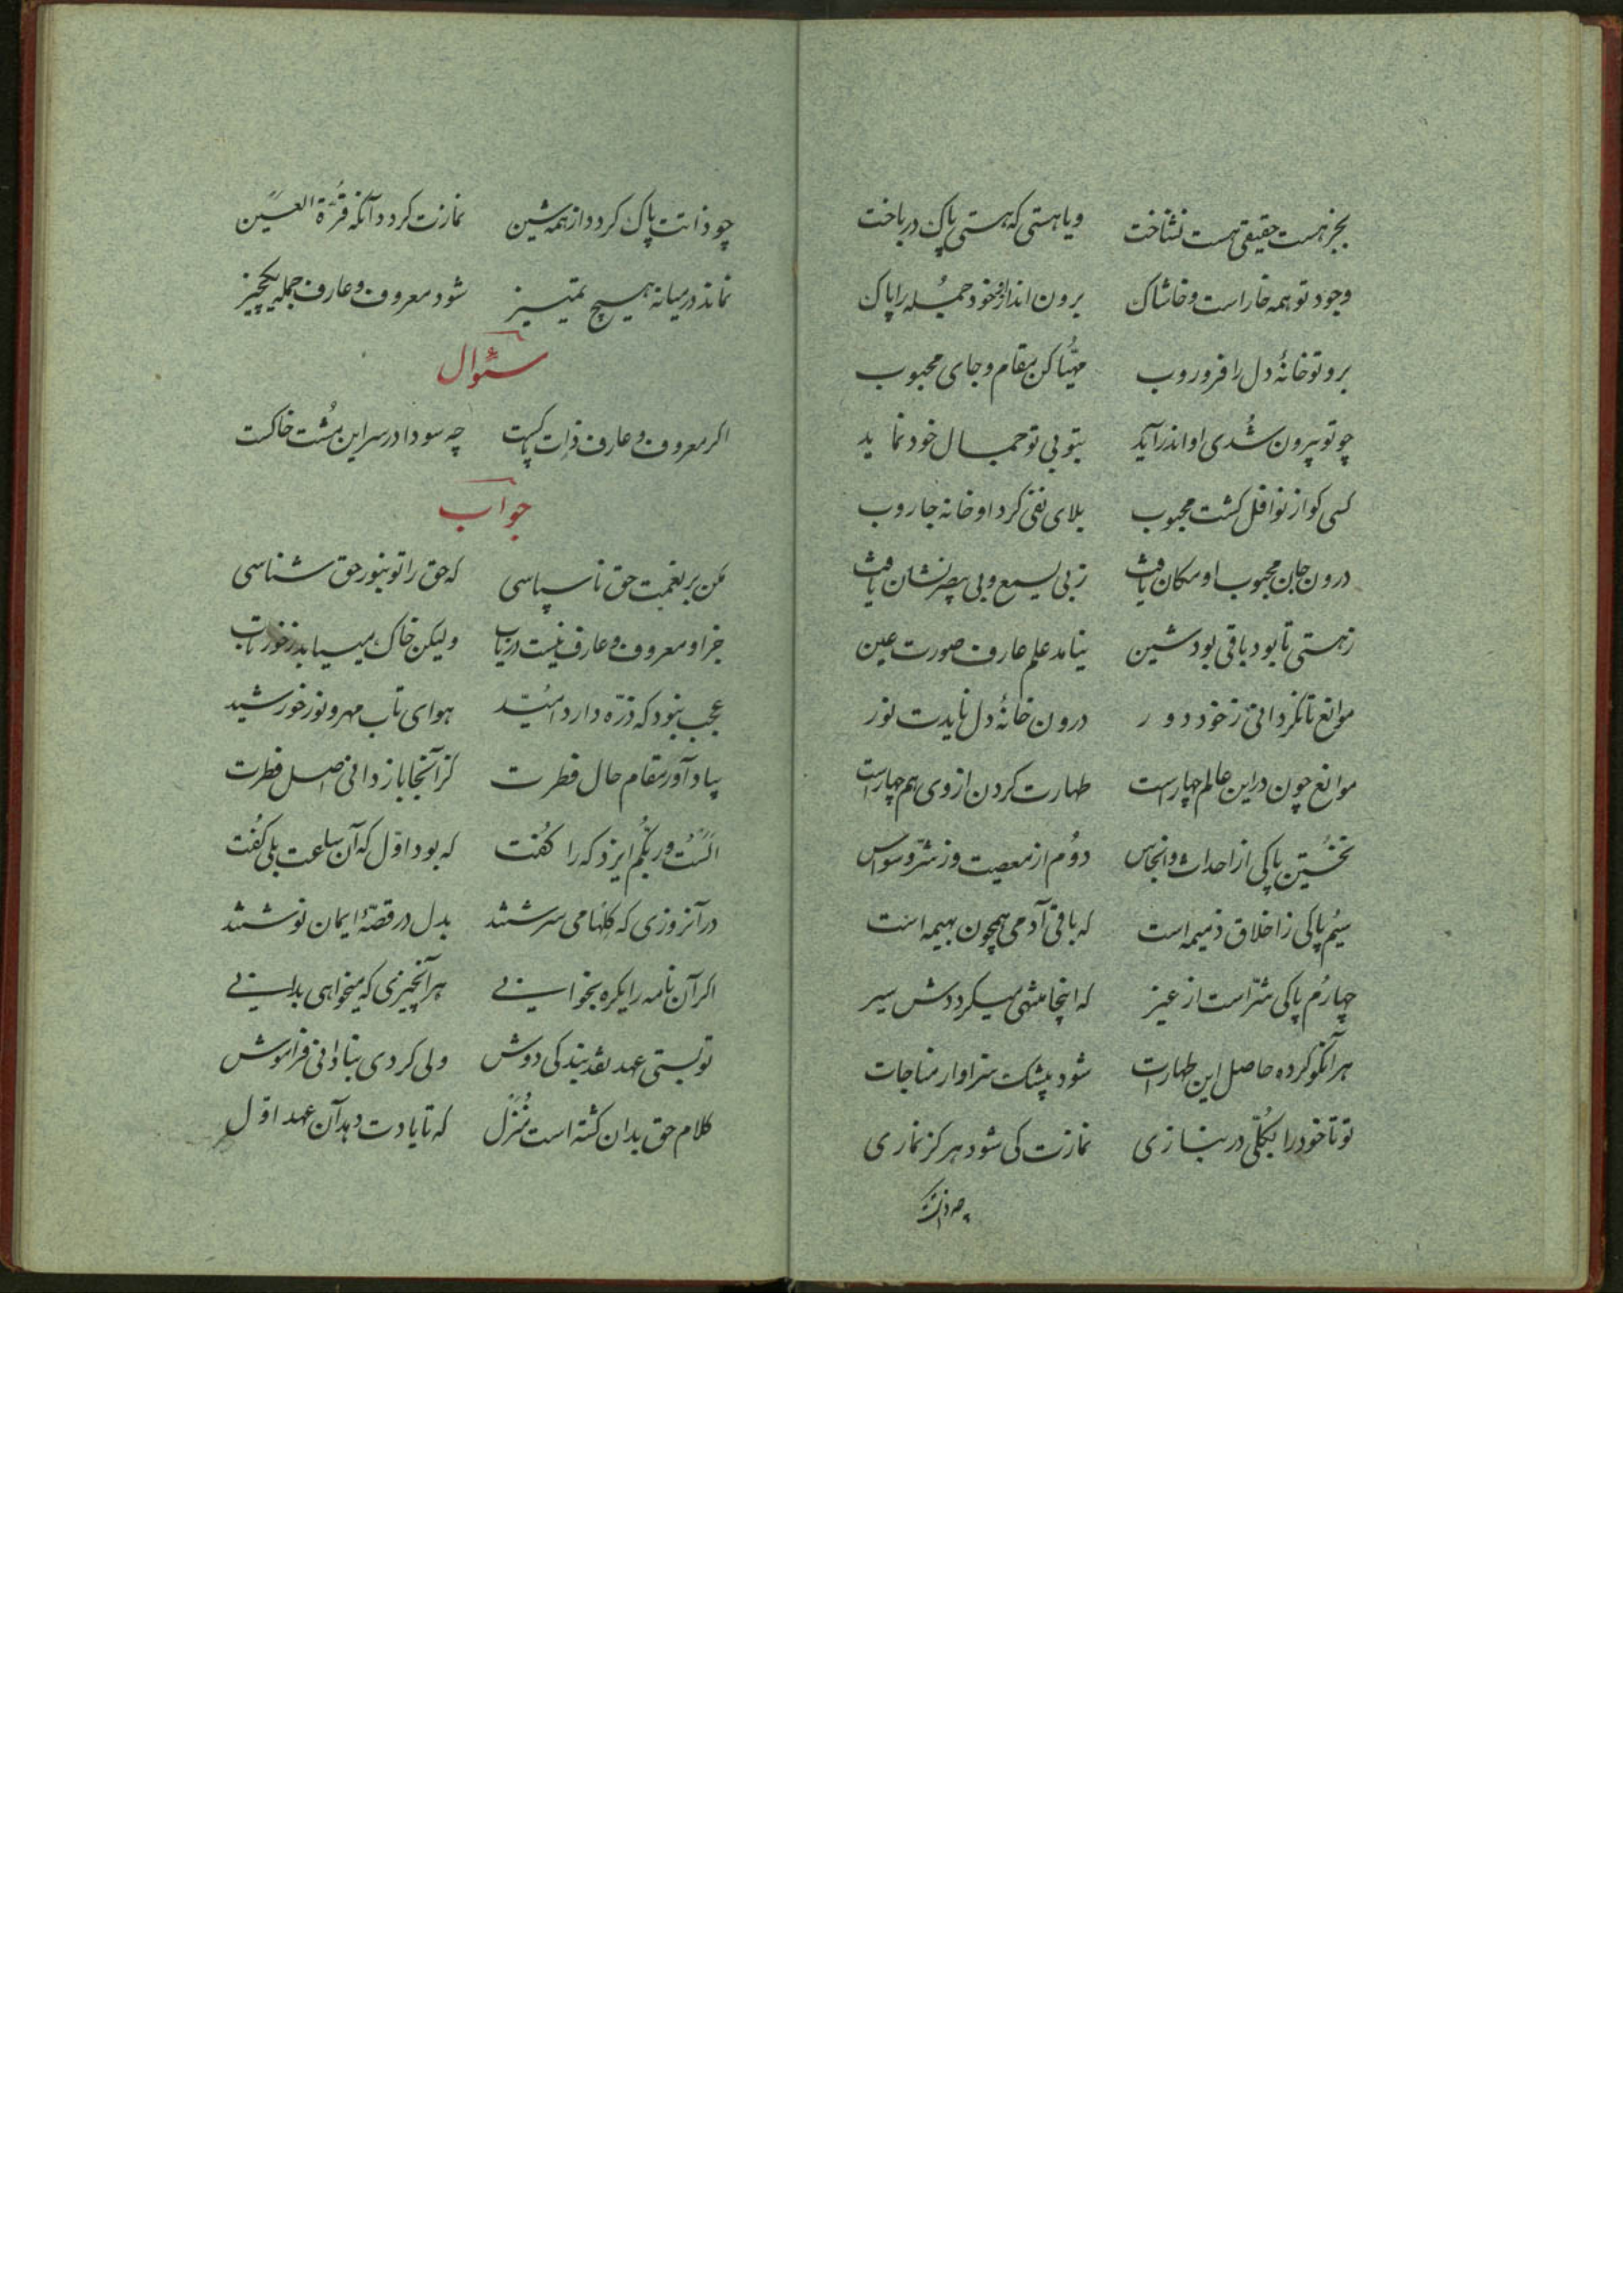 بجز هست حقیقی هست نشناخت ویا هستی که هستی پاک درباخت
وجود تو همه خار است و خاشاک برون انداز از خود جمله را پاک
برو تو خانهٔ دل را فرو روب مهیّا کن مقام و جای محبوب
چو تو بیرون شُدی او اندر آید بتو بی تو جمال خود نماید
کسی کو از نوافل گشت محبوب بلای نفی کرد او خانه جاروب
درون جان محبوب او مکان یافت ز بی یسمع و بی یبصر نشان یافت
ز هستی تا بود باقی بود شین نیامد علم عارف صورت عین
موانع تا نگردانی ز خود دور درون خانهٔ دل نایدت نور
موانع چون در این عالم چهار است طهارت کردن از وی هم چهار است
نخُستین پاکی از احداث و انجاس دوُم از معصیت وز شرّ وسواس
سیُم پاکی ز اخلاق ذمیمه است که با وی آدمی همچون بهیمه است
چهارُم پاکی سّر است از غیر که اینجا منتهی میگرددش سیر
هر آنکو کرده حاصل این طهارات شود بیشک سزاوار مناجات
تو تا خود را بکُلّی در نبازی نمازت کی شود هرگز نمازی
چو ذاتت
چو ذاتت پاک گردد از همه شین نمازت گردد آنگه قُرّة العَین
نماند در میانه هیچ تمییز شود معروف و عارف جمله یکچیز
سئوال
اگر معروف و عارف ذات پاکست چه سودا در سر این مُشت خاکست
جواب
مکن بر نعمت حق ناسپاسی که حق را تو بنور حق شناسی
جز او معروف و عارف نیست دریاب ولیکن خاک میبیابد ز خور تاب
عجب نبود که ذرّه دارد امّید هوای تاب مهر و نور خورشید
بیاد آور مقام حال فطرت کز آنجا باز دانی اصل فطرت
اَلَستُ و ربّکُم ایزد که را گفت که بود اوّل که آن ساعت بلی گُفت
در آنروزی که گلها می سرشتند بدل در قصّهٔ ایمان نوشتند
اگر آن نامه را یکره بخوانی هر آنچیزی که میخواهی بدانی
تو بستی عهد عقد بندگی دوش ولی کردی بنادانی فراموش
کلام حق بدان گشته است مُنزَل که تا یادت دهد آن عهد اوّل